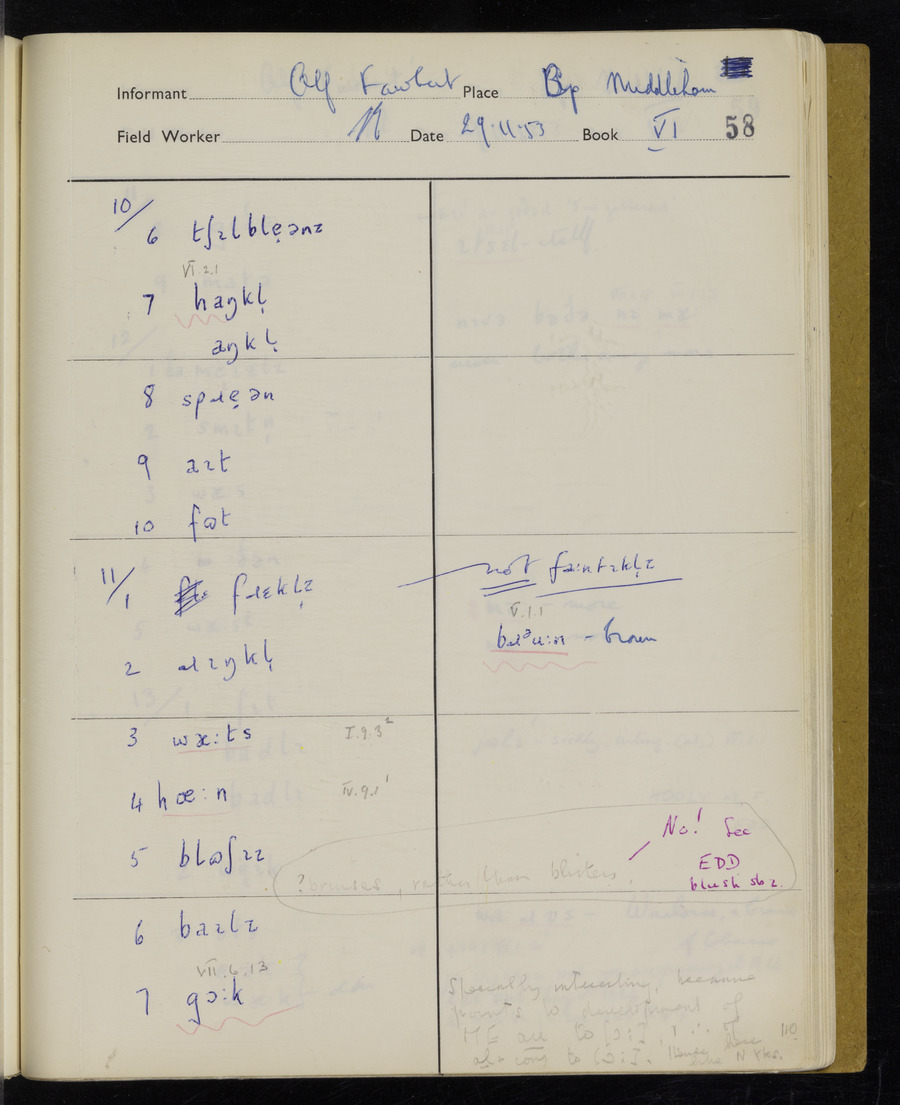 Informant Alf Place Bp Middleham
Field Worker Date 29.11.53 Book VI 58
10/
6 tʃɪlblẹənz
VI.2.1
7 haŋkḷ
aŋkḷ
8 spɹẹən
9 aɪt
10 fɷt
11/
1 fɹɛkḷz not
V.1.1
2 ɹɪŋkḷ bɹᵊu:n - brown
3 wæ:ts I.9.3²
4 hœ:n IV.9.1¹
No! See
5 blɷʃɪz ? bruises, rather than blisters. EDD
blush sb 2.
6 baɪlz
VII.6.13
7 gɔ:k Specially interesting, because
points to development of
ME au to [ɔ:],
to [ɔ:]. N Yks.